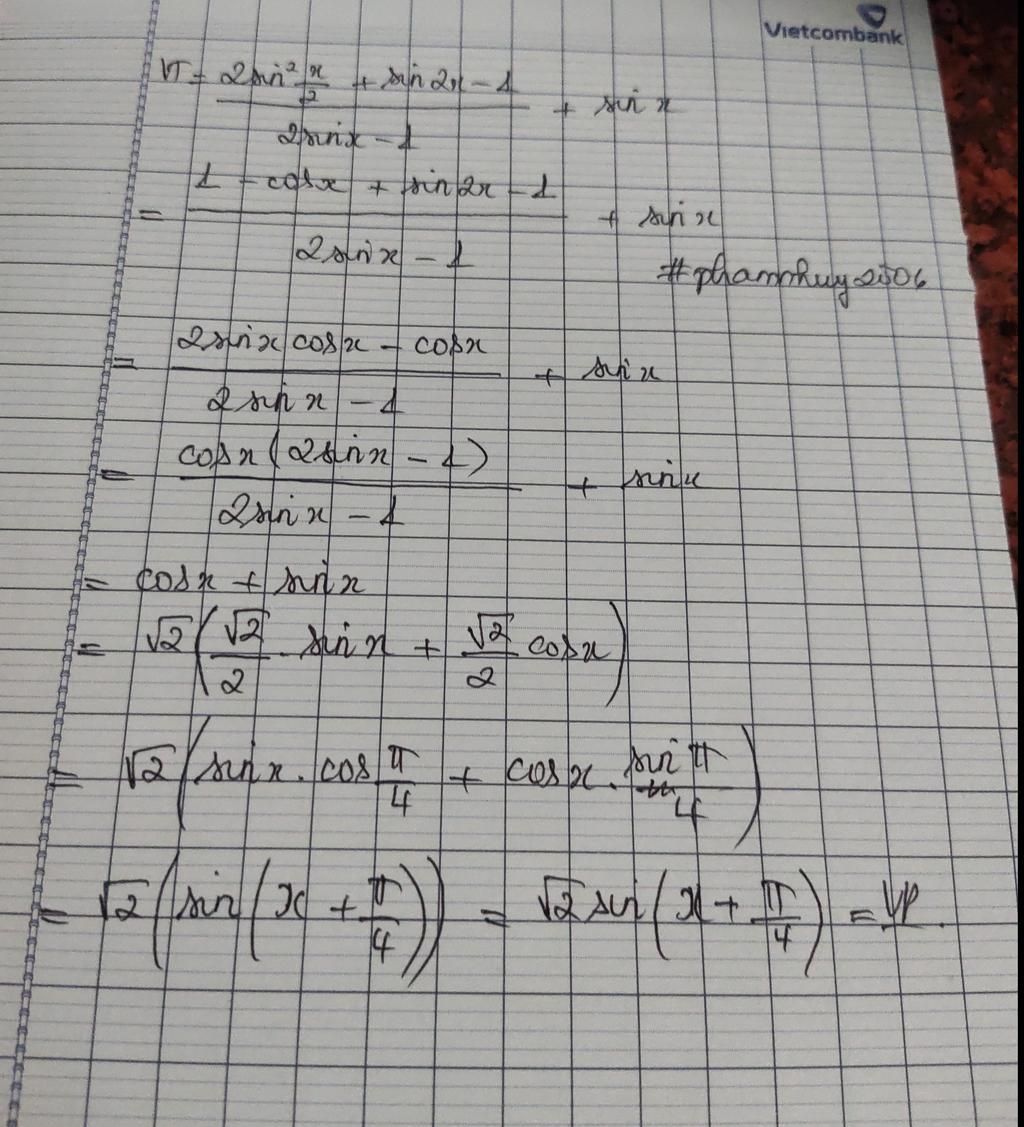 Vietcombank
VT = \frac{2sin² \frac{x}{2} + sin 2x - 1}{2sinx - 1} + sin x
= \frac{1 - cosx + sin 2x - 1}{2sinx - 1} + sin x
#phamnhuy2506
= \frac{2sinx cosx - cosx}{2sinx - 1} + sin x
= \frac{cosx (2sinx - 1)}{2sinx - 1} + sinx
= cosx + sinx
= √2 ( \frac{√2}{2} . sinx + \frac{√2}{2} cosx )
= √2 ( sinx . cos \frac{π}{4} + cosx . sin \frac{π}{4} )
= √2 ( sin ( x + \frac{π}{4} ) ) = √2 sin ( x + \frac{π}{4} ) = VP.